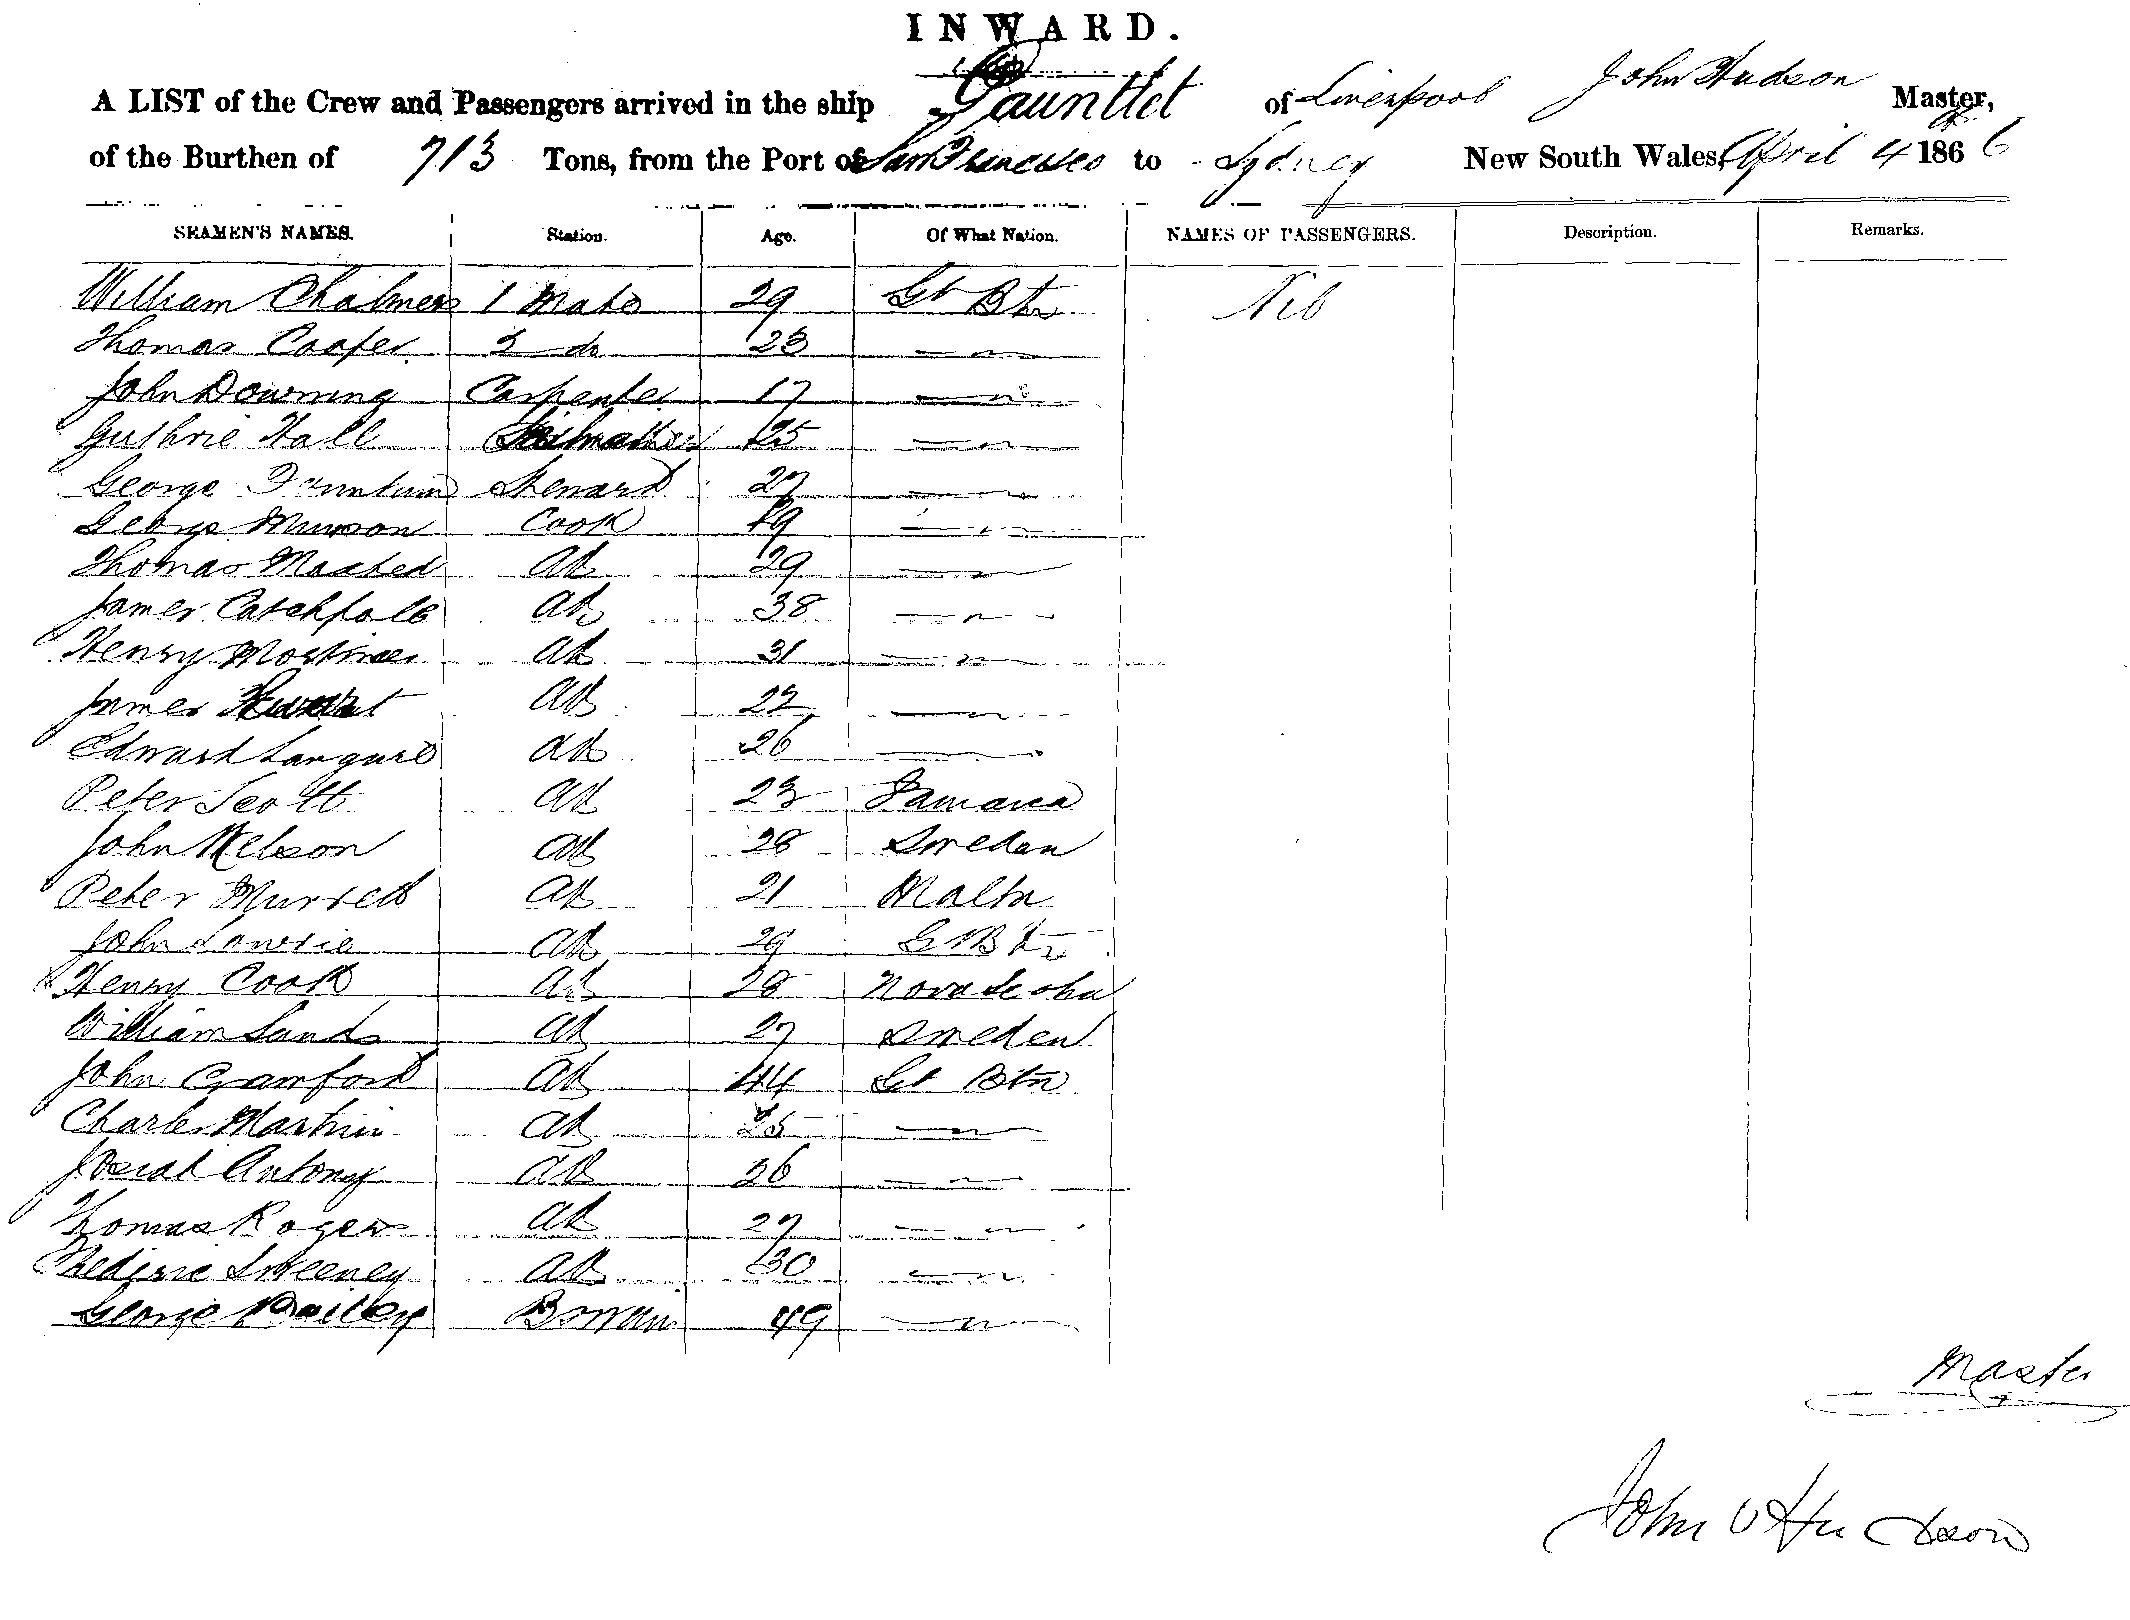 INWARD.
A LIST of the Crew and Passengers arrived in the ship Gauntlet of Liverpool John Hudson Master,
of the Burthen of 713 Tons, from the Port of San Francisco to Sydney New South Wales, April 4 1866
SEAMEN'S NAMES. Station. Age. Of What Nation. NAMES OF PASSENGERS. Description. Remarks.
William Chalmers 1 Mate 29 Gt Btn Nil
Thomas Cooper 2 do 23 — " —
John Downing Carpenter 17 — " —
Guthrie Hall Sailmaker 25 — " —
George Steward 27 — " —
George Munson Cook 29 — " —
Thomas AB 29 — " —
James Catchpole AB 38 — " —
Henry Mortimer AB 31 — " —
James AB 22 — " —
Edward AB 26 — " —
Peter Scott AB 23 Jamaica
John Nelson AB 28 Sweden
Peter Murrell AB 21 Malta
John Lowrie AB 29 Gt Btn
Henry Cook AB 28 Nova Scotia
William Sands AB 27 Sweden
John Crawford AB 44 Gt Btn
Charles Martin AB 25 — " —
Josiah Antony AB 26 — " —
Thomas Rogers AB 27 — " —
Sweeney AB 30 — " —
George Bailey Bosman 49 — " —
Master
John Hudson